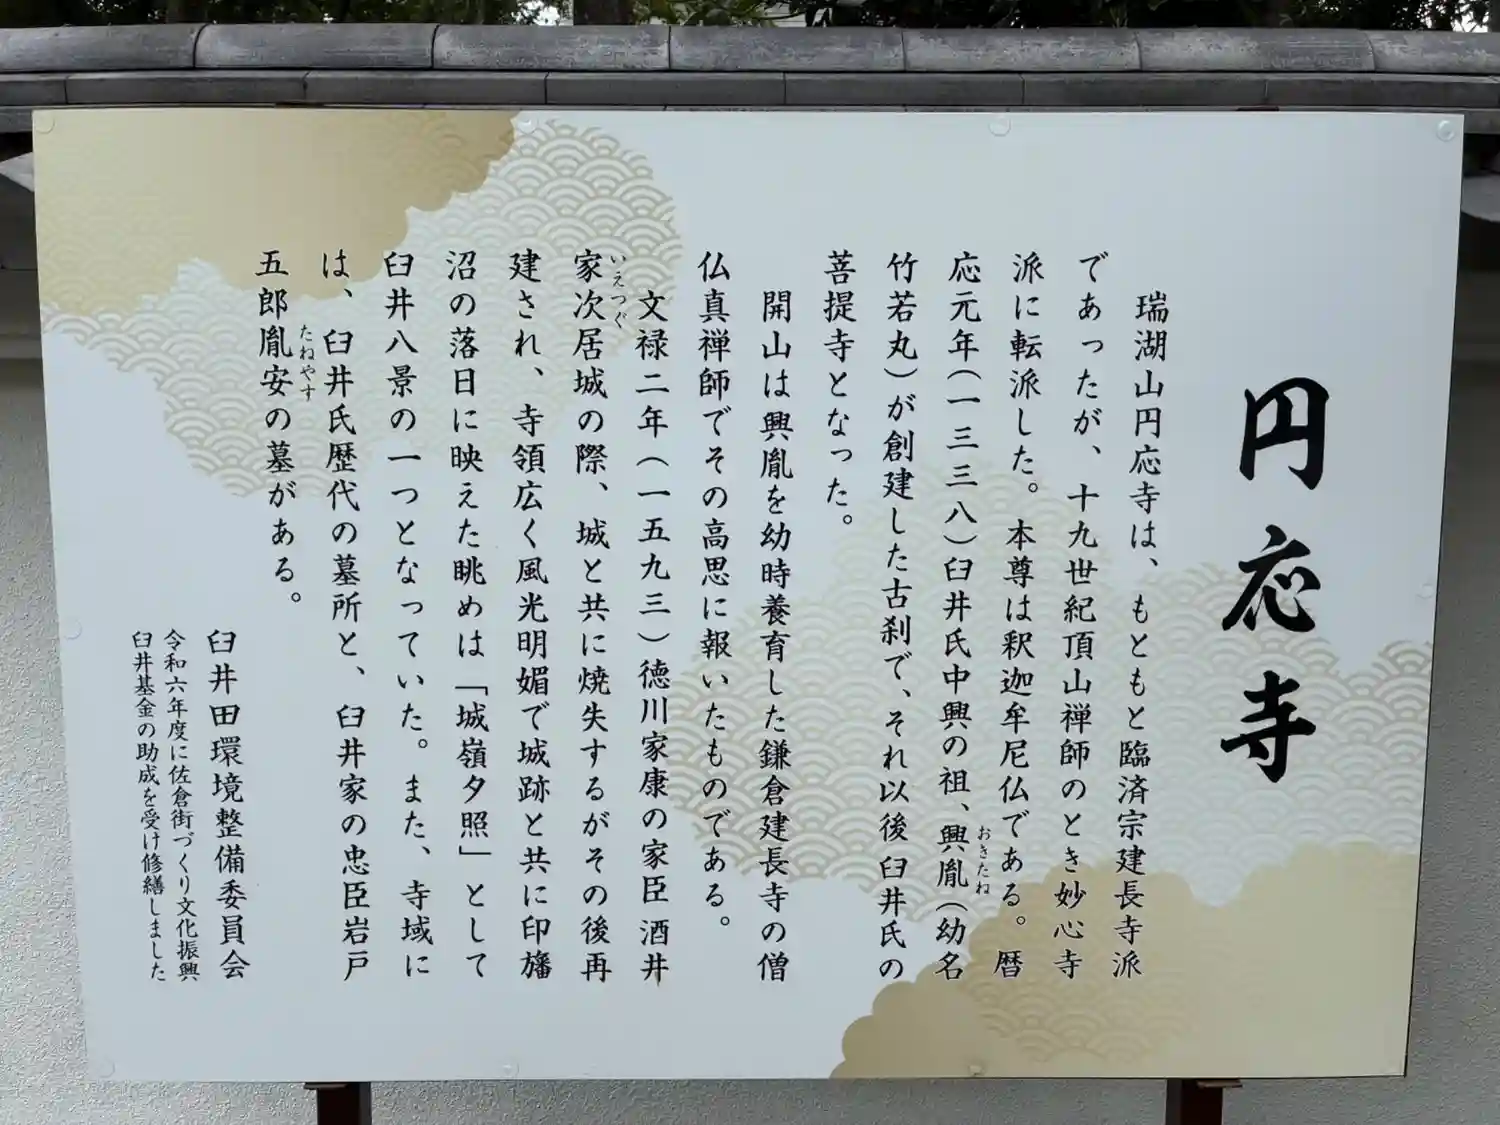 円応寺
瑞湖山円応寺は、もともと臨済宗建長寺派
であったが、十九世紀頂山禅師のとき妙心寺
派に転派した。本尊は釈迦牟尼仏である。暦
応元年(一三三八)臼井氏中興の祖、興胤(幼名
おきたね
竹若丸)が創建した古刹で、それ以後臼井氏の
菩提寺となった。
開山は興胤を幼時養育した鎌倉建長寺の僧
仏真禅師でその高思に報いたものである。
文禄二年(一五九三)徳川家康の家臣酒井
家次居城の際、城と共に焼失するがその後再
いえつぐ
建され、寺領広く風光明媚で城跡と共に印旛
沼の落日に映えた眺めは「城嶺夕照」として
臼井八景の一つとなっていた。また、寺域に
は、臼井氏歴代の墓所と、臼井家の忠臣岩戸
五郎胤安の墓がある。
たねやす
臼井田環境整備委員会
令和六年度に佐倉街づくり文化振興
臼井基金の助成を受け修繕しました